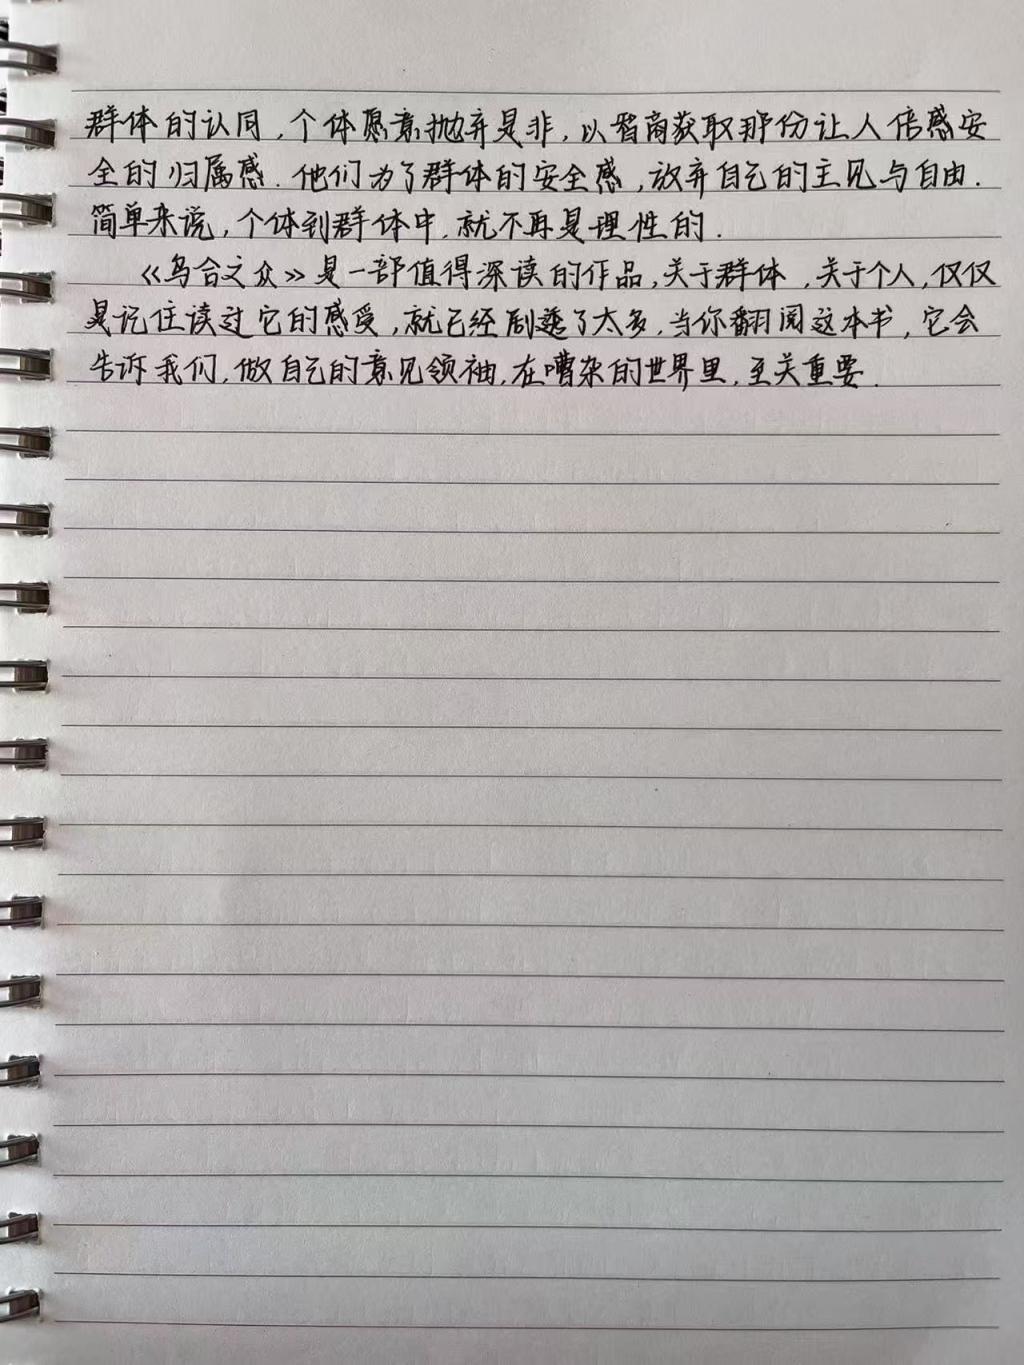 群体的认同，个体愿意抛弃是非，以智商获取那份让人倍感安
全的归属感.他们为了群体的安全感，放弃自己的主见与自由.
简单来说，个体到群体中.就不再是理性的.
《乌合之众》是一部值得深读的作品，关于群体，关于个人，仅仅
是记住读过它的感受，就已经剧透了太多，当你翻阅这本书，它会
告诉我们，做自己的意见领袖，在嘈杂的世界里，至关重要.